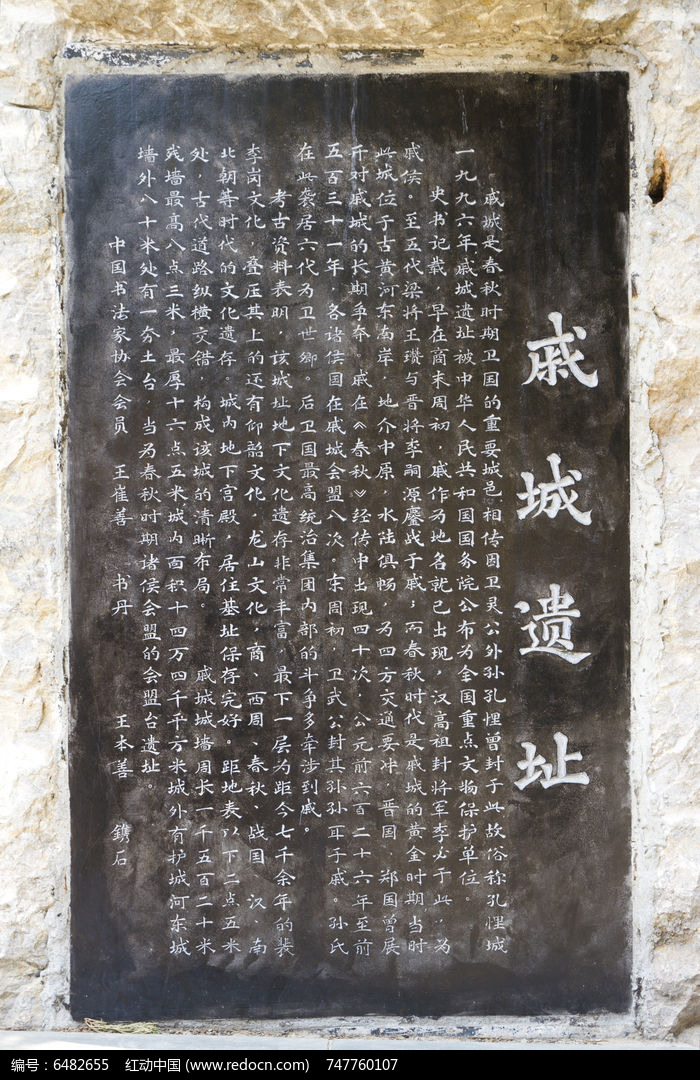 戚城遗址
戚城是春秋时期卫国的重要城邑,相传因卫灵公外孙孔悝曾封于此故俗称孔悝城
一九九六年戚城遗址被中华人民共和国国务院公布为全国重点文物保护单位。
史书记载,早在商末周初,戚作为地名就已出现,汉高祖封将军李必于此,为
戚侯。至五代梁将王瓒与晋将李嗣源鏖战于戚;而春秋时代是戚城的黄金时期,当时
此城位于古黄河东南岸,地介中原,水陆俱畅,为四方交通要冲,晋国、郑国曾展
开对戚城的长期争夺。戚在《春秋》经传中出现四十次,公元前六百二十六年至前
五百三十一年,各诸侯国在戚城会盟八次,东周初,卫武公封其孙孙耳于戚。孙氏
在此袭居六代为卫世卿。后卫国最高统治集团内部的斗争多牵涉到戚。
考古资料表明,该城址地下文化遗存非常丰富,最下一层为距今七千余年的裴
李岗文化,叠压其上的还有仰韶文化,龙山文化,商、西周、春秋、战国、汉、南
北朝等时代的文化遗存。城内地下宫殿,居住基址保存完好。距地表以下二点五米
处,古代道路纵横交错,构成该城的清晰布局。 戚城城墙周长一千五百二十米
残墙最高八点三米,最厚十六点五米城内面积十四万四千平方米城外有护城河东城
墙外八十米处有一夯土台,当为春秋时期诸侯会盟的会盟台遗址。
中国书法家协会会员 王崔善 书丹 王本善 镌石
编号:6482655 红动中国 (www.redocn.com) 747760107